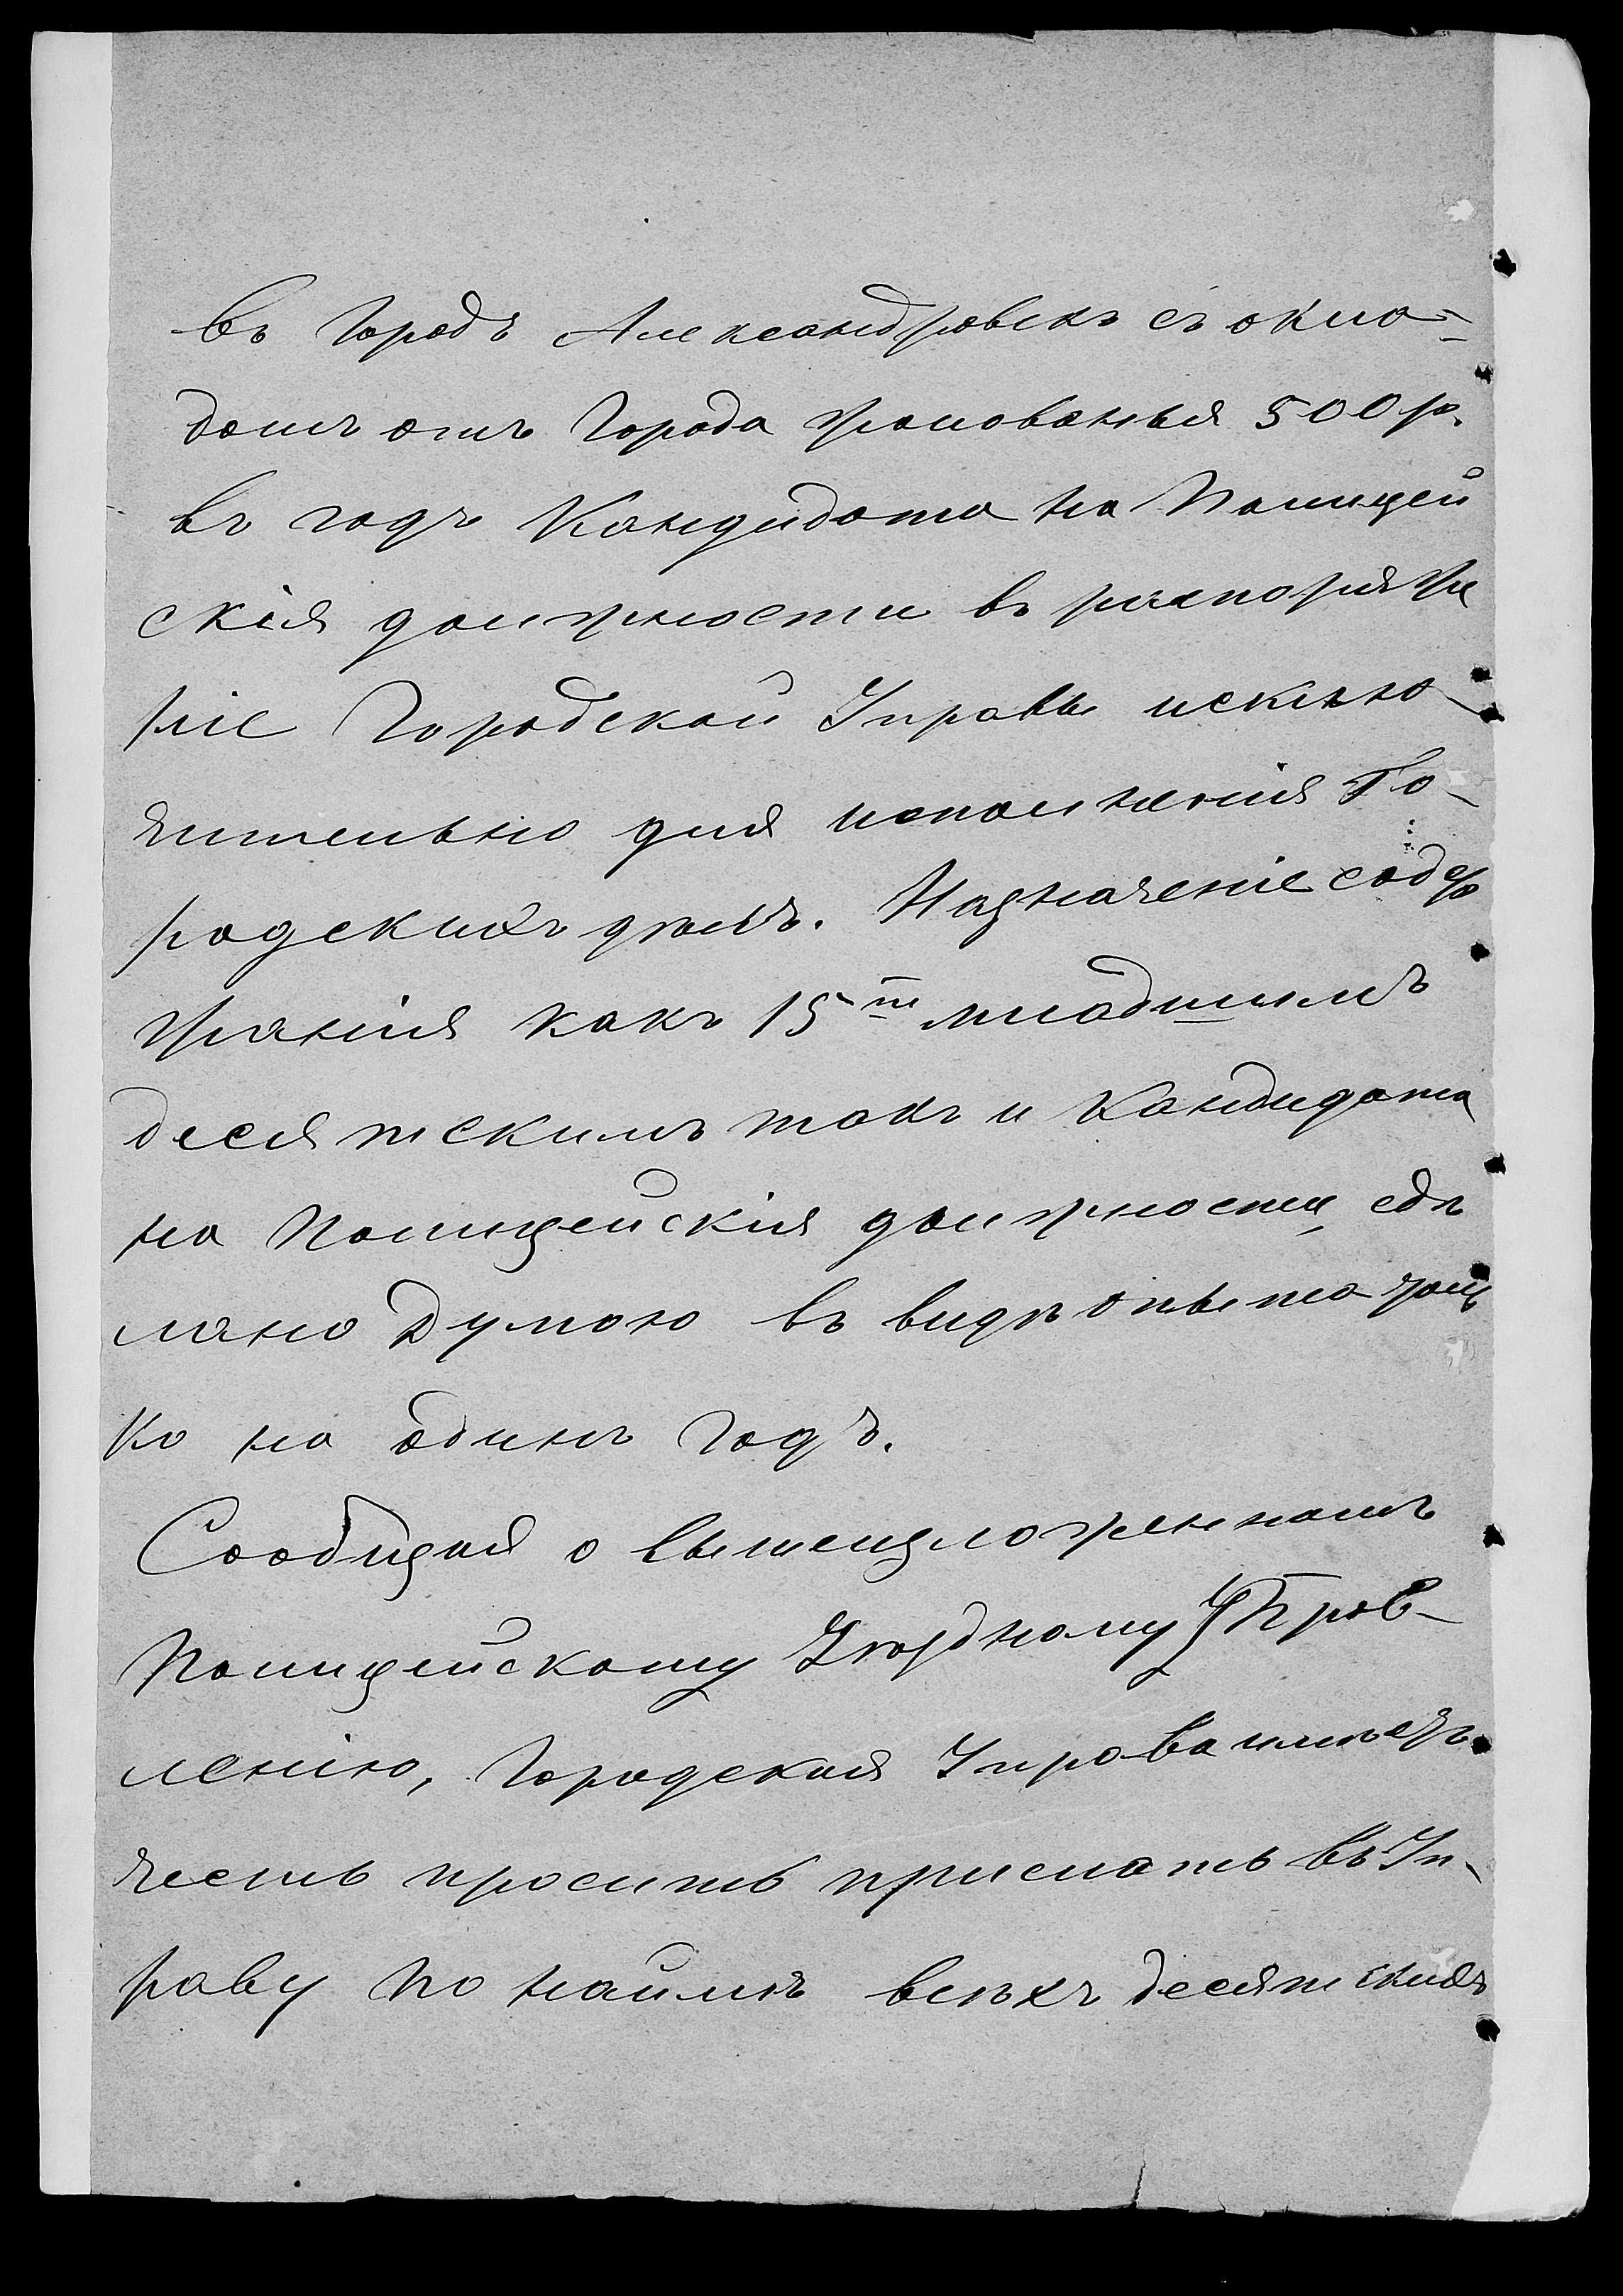 въ Городѣ Александровскѣ съ окла-
домъ отъ Города жалованья 500 р.
въ годъ Кандидата на Полицей
скія должности въ распоряже
ніе Городской Управы исклю-
чительно для исполненія Го-
родскихъ дѣлъ. Назначеніе содер
жанія какъ 15ти младшимъ
десятскимъ такъ и Кандидата
на Полицейскія должности, сдѣ
лано Думою въ видѣ опыта толь
ко на одинъ годъ.
Сообщая о вышеизложенномъ
Полицейскому Уѣздному Управ-
ленію, Городская Управа имѣетъ
честь просить прислать въ Уп-
раву по наймѣ всѣхъ десятскихъ